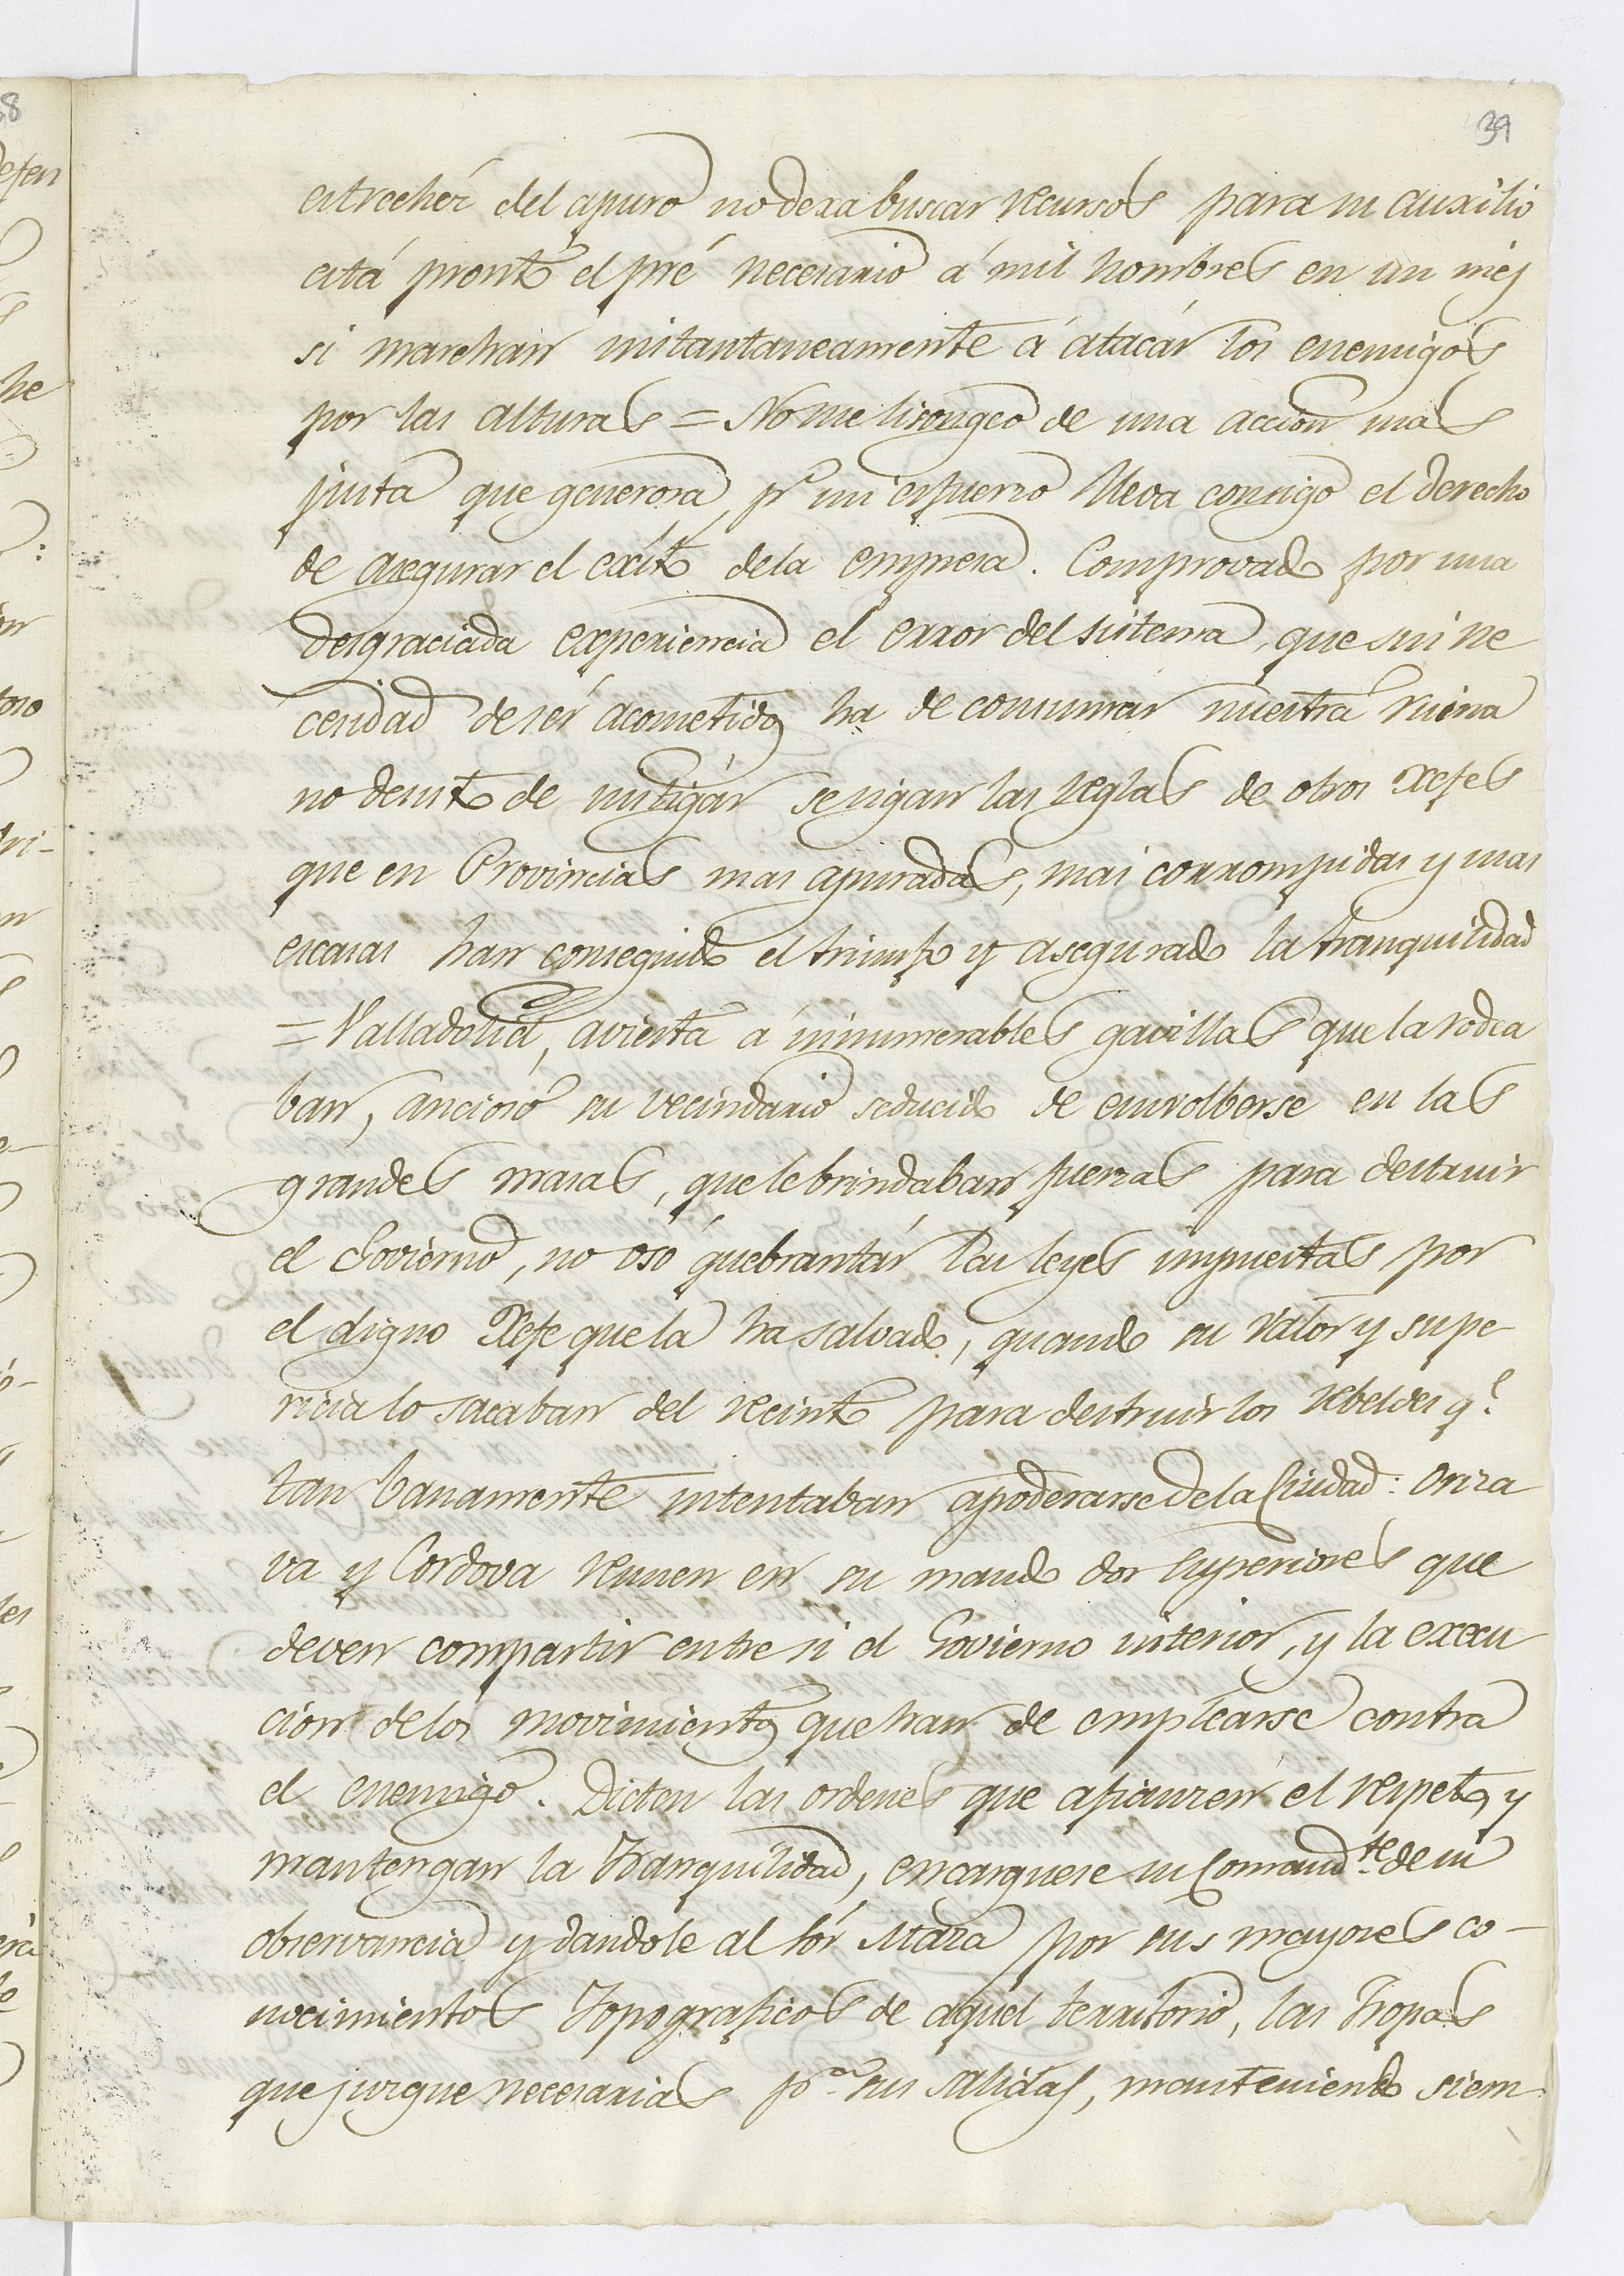 39
estrechéz del apuro no dexa buscar recursos para su auxilio
está pronto el pré necesario á mil hombres en un mes
si marchan instantaneamente á atacár los enemigos
por las alturas = No me lisongeo de una accion mas
justa que generosa, pr. mi esfuerzo lleva consigo el derecho
de asegurar el exîto dela empresa. Comprovado por una
desgraciada experiencia el error del sistema, que sin ne
cesidad de sér acometidos ha de consumár nuestra ruina
no desisto de instigár se sigan las reglas de otros Xefes
que en Provincias mas apuradas, mas corrompidas y mas
escasas han conseguido el triunfo y asegurado la tranquilidad
= Valladolid, avierta á innumerables gavillas que la rodea
ban, ancioso su vecindario seducido de emvolberse en las
grandes masas, que le brindaban fuerzas para destruir
el Govierno, no osó quebrantár las leyes impuestas por
el digno Xefe que la ha salvado, quando su valor y supe
ricia lo sacaban del recinto para destruir los rebeldes qe.
tan banamente intentaban apoderarse de la Ciudad: Oriza
va y Cordova reunen en su mando dos Superiores que
deven compartir entre si el Govierno interior, y la execu
cion de los movimientos que han de emplearse contra
el enemigo. Dicten las ordenes que afianzen el respeto, y
mantengan la Tranquilidad, encarguese su Comandte. de su
observancia y dandole al Sór Maza por sus mayores co-
nocimientos Topograficos de aquel territorio, las Tropas
que juzgue necesarias pa. sus salidas, manteniendo siem